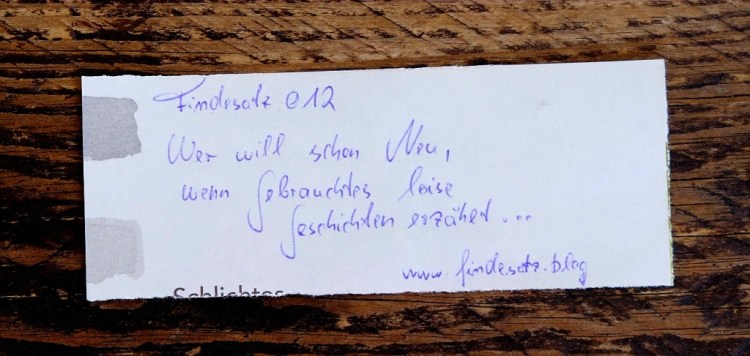 Findesatz 012
Wer will schon Neu,
wenn Gebrauchtes leise
Geschichten erzählt...
www.findesatz.blog
Schlichtes